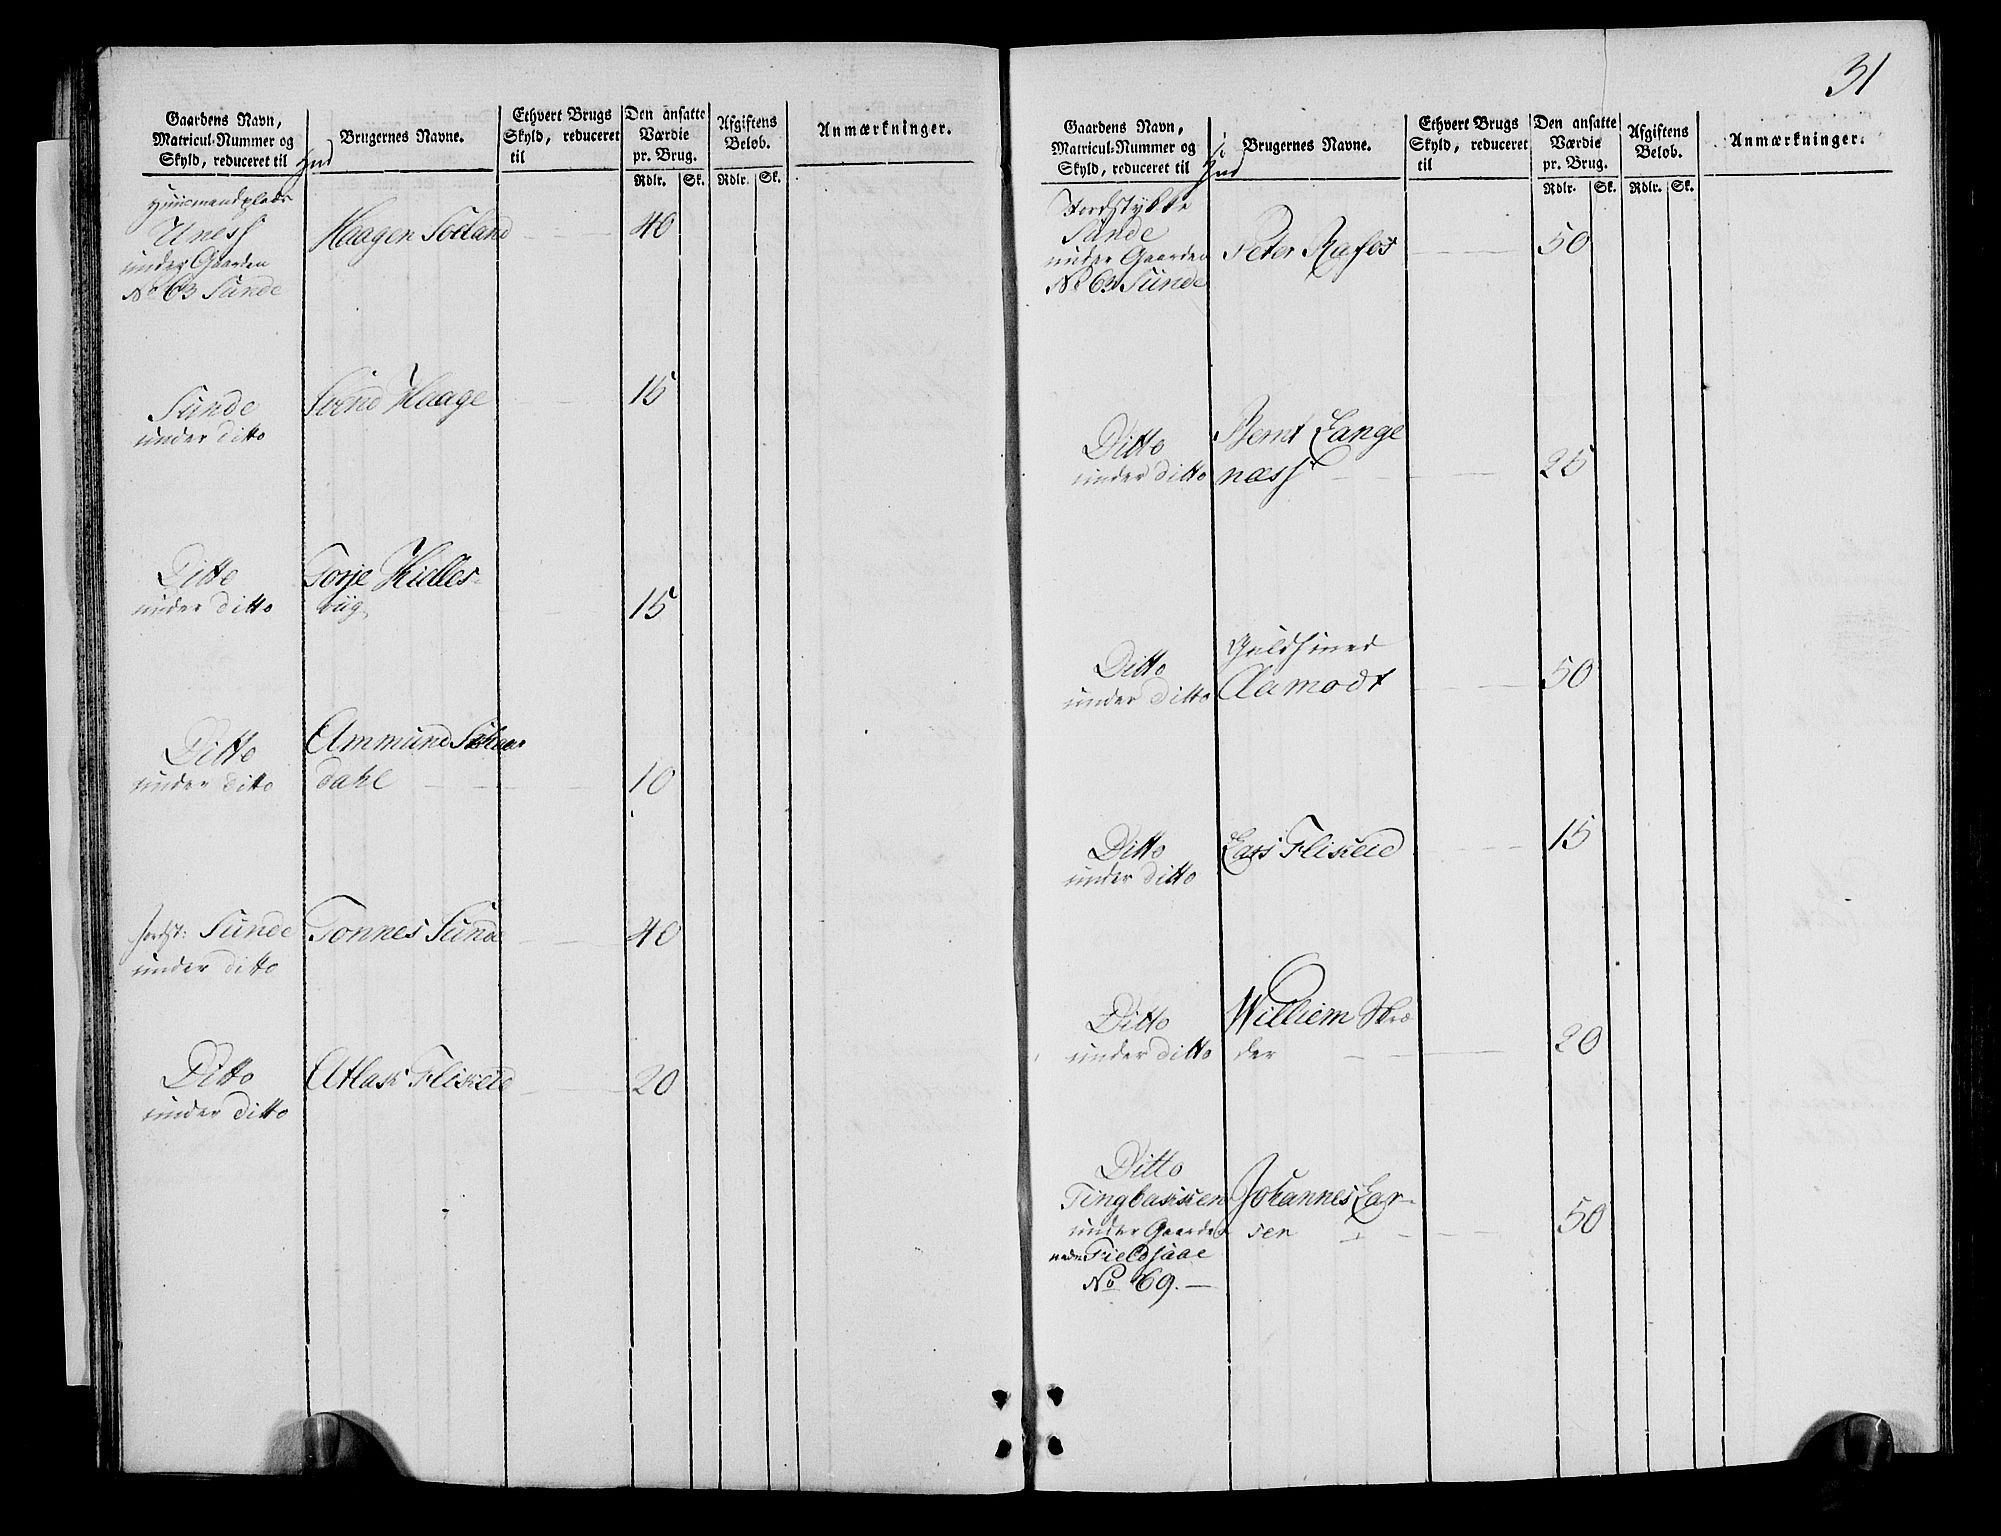 Gaardens Navn,
Matricul-Nummer og
Skyld, reduceret til
Hud
Brugernes Navne.
Ethvert Brugs
Skyld, reduceret
til
Den ansatte
Værdie
pr. Brug.
Rdlr. Sk.
Afgiftens
Beløb.
Rdlr. Sk.
Anmærkninger.
Huusmandplads
Uness
under Gaarden
No 63 Sunde
Haagen Søeland
40
Sunde
under ditto
Svend Haage
15
Ditto
under ditto
Torje Kielles-
viig
15
Ditto
under ditto
Ammund
dahl
10
Jordst: Sunde
under ditto
Tonnes Sunde
40
Ditto
under ditto
Atlak Flikeid
20
31
Gaardens Navn,
Matricul-Nummer og
Skyld, reduceret til
i
Hud
Brugernes Navne.
Ethvert Brugs
Skyld, reduceret
til
Den ansatte
Værdie
pr. Brug.
Rdlr. Sk.
Afgiftens
Beløb.
Rdlr. Sk.
Anmærkninger.
Jordstykke
Sunde
under Gaarden
No 63 Sunde
Peter Rafos
50
Ditto
under ditto
Bernt Lange
næss
25
Ditto
under ditto
Guldsmed
Aamodt
50
Ditto
under ditto
Lars Flikeid
15
Ditto
under ditto
Williem Skrø
der
20
Ditto
Tingbakken
under Gaarden
nedre Fieldsaae
No 69.
Johannes Lar-
sen
50